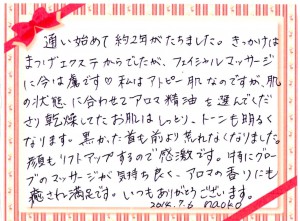 通い始めて約2年がたちました。きっかけは
まつげエクステからでしたが、フェイシャルマッサージ
に今は虜です♡私はアトピー肌なのですが、肌
の状態に合わせてアロマ精油を選んでくだ
さり乾燥してたお肌はしっとり、トーンも明るく
なります。黒かった首も前より荒れなくなりました。
もリフトアップするので感激です。特にグロー
ブのマッサージが気持ち良く、アロマの香りにも
癒され満足です。いつもありがとうございます。
2016.7.6 naoko